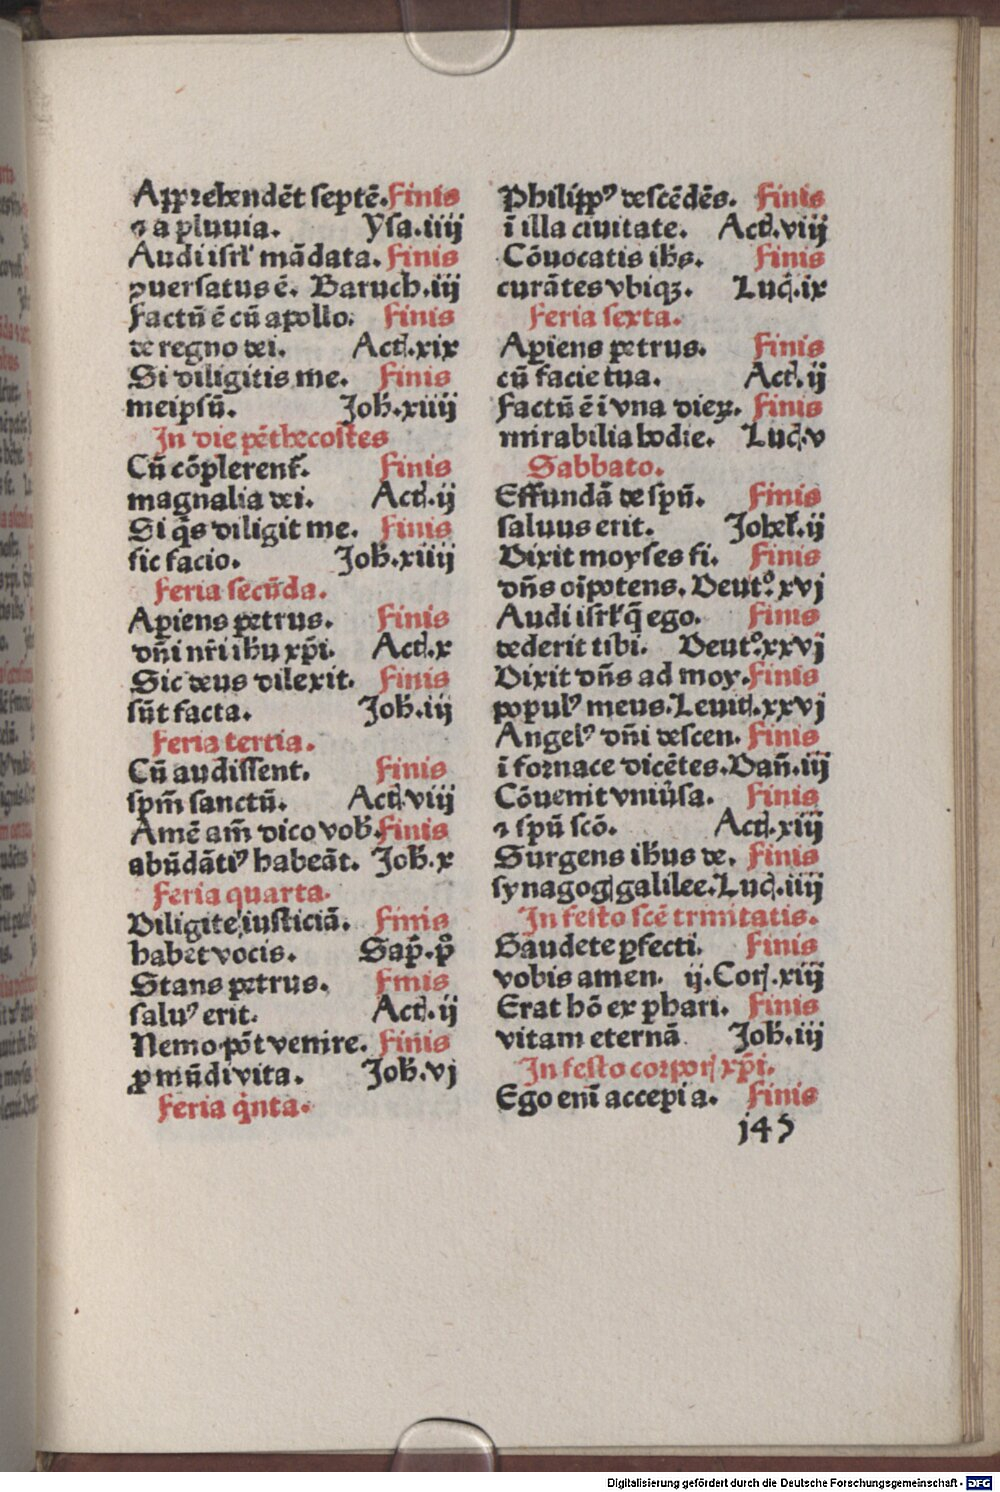 Apprehendēt septē. Finis
⁊ a pluuia. Ysa.iiij
Audi isrl' mādata. Finis
ꝯuersatus ē. Baruch.iij
Factū ē cū apollo. Finis
de regno dei. Act.xix
Si diligitis me. Finis
meipsū. Joh.xiiij
In die pēthecostes
Cū cōplerent̄. Finis
magnalia dei. Act.ij
Si q̄s diligit me. Finis
sic facio. Joh.xiiij
Feria secūda.
Apiens petrus. Finis
dn̄i nr̄i ihu xp̄i. Act.x
Sic deus dilexit. Finis
sūt facta. Joh.iij
Feria tertia.
Cū audissent. Finis
spm̄ sanctū. Act.viij
Amē am̄ dico vob. Finis
abūdātiꝰ habeāt. Joh.x
Feria quarta.
Diligite iusticiā. Finis
habet vocis. Sap̄.p̊
Stans petrus. Finis
saluꝰ erit. Act.ij
Nemo pōt venire. Finis
ꝓ mūdi vita. Joh.vj
Feria q̇nta.
Philippꝰ descēdēs. Finis
ī illa ciuitate. Act.viij
Cōuocatis ihs. Finis
curātes vbiqꝫ. Luc.ix
Feria sexta.
Apiens petrus. Finis
cū facie tua. Act.ij
Factū ē i vna dieꝝ. Finis
mirabilia hodie. Luc.v
Sabbato.
Effundā de spū. Finis
saluus erit. Johel.ij
Dixit moyses fi. Finis
dn̄s oīpotens. Deut°.xvj
Audi isrl' q̄ ego. Finis
dederit tibi. Deut°.xxvj
Dixit dn̄s ad moy. Finis
populꝰ meus. Leuit.xxvj
Angelꝰ dn̄i descen. Finis
ī fornace dicētes. Dan̄.iij
Cōuenit vniu̇sa. Finis
⁊ spū scō. Act.xiij
Surgens ihus de. Finis
synagogꝭ galilee. Luc.iiij
In festo scē trinitatis.
Gaudete ꝑfecti. Finis
vobis amen. ij.Corꝭ.xiij
Erat hō ex phari. Finis
vitam eternā Joh.iij
In festo corporꝭ xp̄i.
Ego enī accepi a. Finis
j45
Digitalisierung gefördert durch die Deutsche Forschungsgemeinschaft - DFG